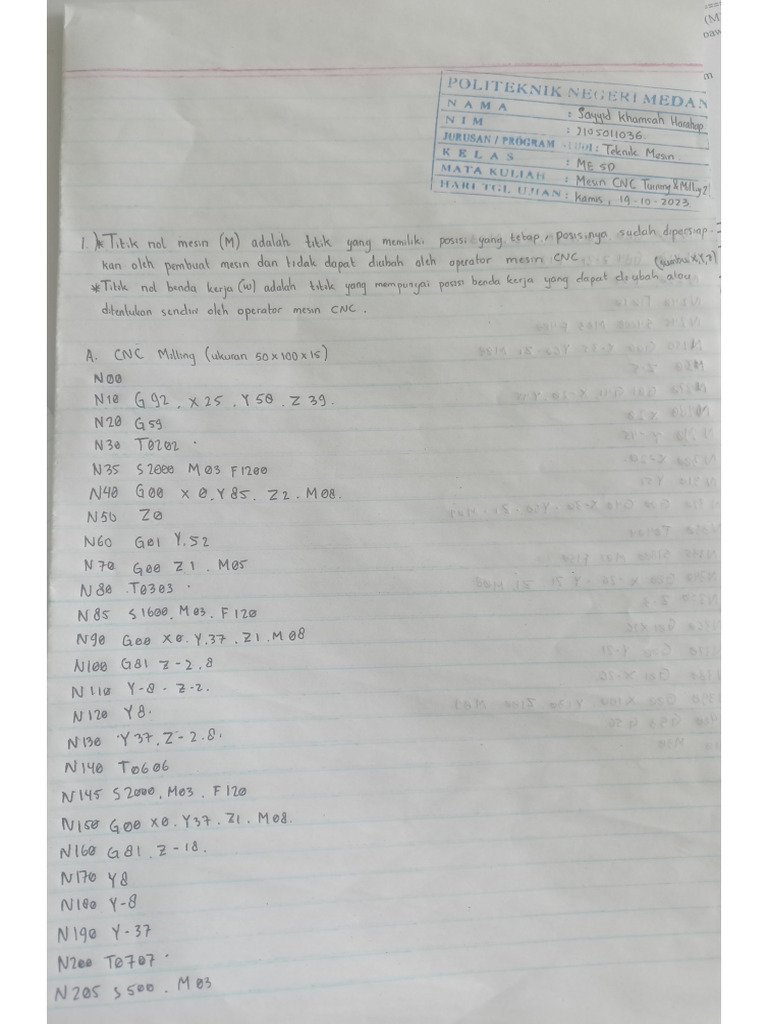 POLITEKNIK NEGERI MEDAN
NAMA : Sayyid Khamsah Harahap
NIM : 2105011036
JURUSAN / PROGRAM STUDI : Teknik Mesin
KELAS : ME 5D
MATA KULIAH : Mesin CNC Turning & Milling 2
HARI TGL UJIAN : Kamis, 19-10-2023
1.) * Titik nol mesin (M) adalah titik yang memiliki posisi yang tetap, posisinya sudah dipersiap-
kan oleh pembuat mesin dan tidak dapat diubah oleh operator mesin CNC.
* Titik nol benda kerja (w) adalah titik yang mempunyai posisi benda kerja yang dapat diubah atau
ditentukan sendiri oleh operator mesin CNC.
A. CNC Milling (ukuran 50 x 100 x 15)
N00
N10 G92 . X 25 . Y 50 . Z 39.
N20 G59
N30 T0202 .
N35 S2000 M03 F1200
N40 G00 X 0. Y 85. Z 2. M08.
N50 Z0
N60 G01 Y.52
N70 G00 Z1 . M05
N80 .T0303 .
N85 S1600. M03. F120
N90 G00 X0. Y.37. Z1. M08
N100 G81 Z-2.8
N110 Y-8 . Z-2.
N120 Y8.
N130 Y37. Z-2.8.
N140 T0606
N145 S2000. M03. F120
N150 G00 X0. Y37. Z1. M08.
N160 G81. Z-18.
N170 Y8
N180 Y-8
N190 Y-37
N200 T0707 .
N205 S500 . M03